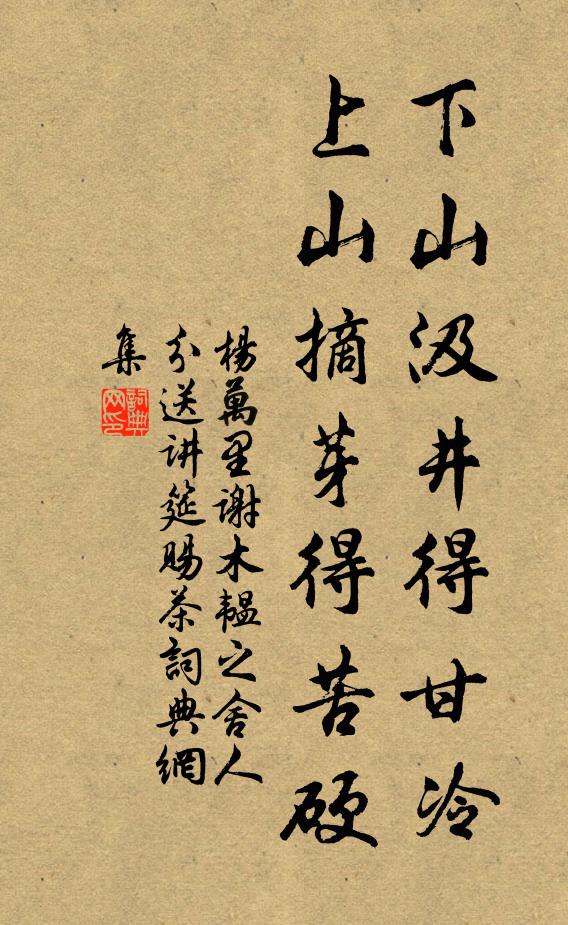 下山汲井得甘冷
上山摘芽得苦硬
楊萬里謝木韞之舍人
分送讲筵賜茶詞典網
集
詞典
网印